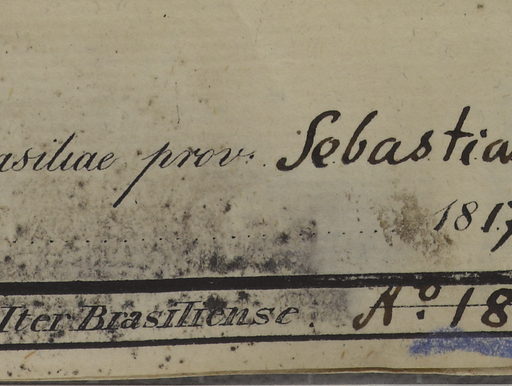 asiliae prov. Sebastia
1817
Iter Brasiliense. Aº. 18